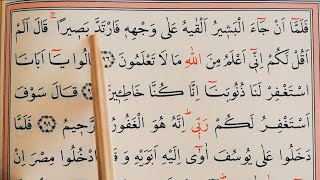 فَلَمَّٓا اَنْ جَٓاءَ الْبَش۪يرُ اَلْقٰيهُ عَلٰى وَجْهِه۪ فَارْتَدَّ بَص۪يرًاۚ قَالَ اَلَمْ
اَقُلْ لَكُمْ اِنّ۪ٓي اَعْلَمُ مِنَ اللّٰهِ مَا لَا تَعْلَمُونَ ﴿٩٦﴾ قَالُوا يَٓا اَبَانَا
اسْتَغْفِرْ لَنَا ذُنُوبَنَٓا اِنَّا كُنَّا خَاطِـ۪ٔينَ ﴿٩٧﴾ قَالَ سَوْفَ
اَسْتَغْفِرُ لَكُمْ رَبّ۪يۜ اِنَّهُ هُوَ الْغَفُورُ الرَّح۪يمُ ﴿٩٨﴾ فَلَمَّا
دَخَلُوا عَلٰى يُوسُفَ اٰوٰٓى اِلَيْهِ اَبَوَيْهِ وَقَالَ ادْخُلُوا مِصْرَ اِنْ